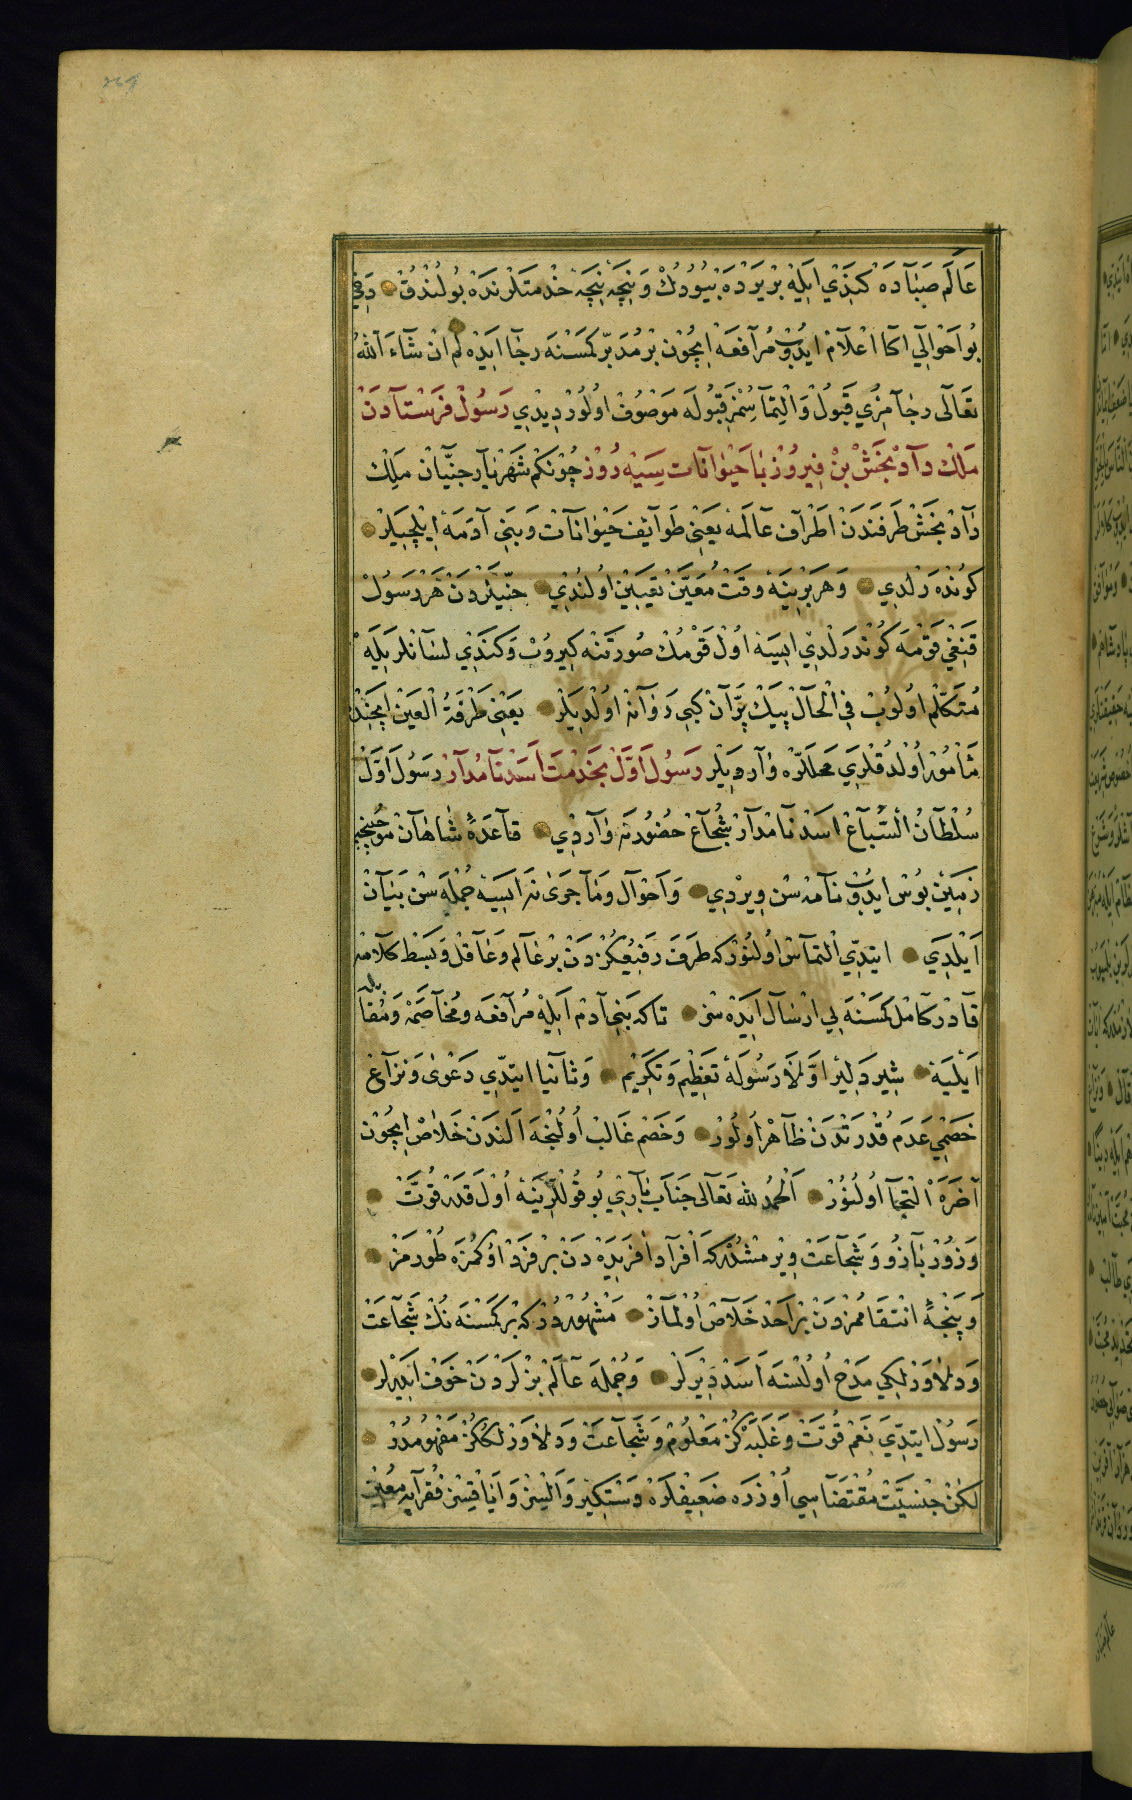 عَالَم صَبَادَه كَنْدِي اِيلِه بِرْ يَرْدَه بُيُودُكْ وَنِيچَه نِيچَه خِدْمَتَلَرِنْدَه بُولُنْدُقْ دَخِي
بُو اَحْوَالِي اَكَا اعْلَام ايدُوب مُرَافَعَه اِيچُون بِرْ مُدَبِّر كَمَسْنَه رَجَا ايدَه لُم اِنْ شَاءَ اللّٰهُ
تَعَالَى رجامِزِي قَبُولْ وَالْتِمَاسُمُز قَبُولَه مَوْصُوفْ اُولُورْ دِيدِي رَسُولْ فِرِسْتَادَنْ
مَلِكْ دَادْبَخْشْ بِنْ فِيرُوزْ بَا حَيْوَانَات سِيَه رُوزْ چُونْكِم شَهْرِيَار جِنِّيَانْ مَلِك
دَادْبَخْشْ طَرَفَنْدَنْ اَطْرَافِ عَالَمَه يَعْنِي طَوَايِفِ حَيْوَانَاتْ وَبَنِي آدَمَه اِيلْچِيلَر
كُونْدَرِلْدِي وَهَر بِرِينَه وَقْت مُعَيَّنْ تَعْيِينْ اُولُنْدِي جِنِّيلَرْدَنْ هَرْ رَسُولْ
قَنْغِي قَوْمَه كُونْدَرِلْدِي اِيسَه اُولْ قَوْمُكْ صُورَتَنَه كِيرُوبْ وَكَنْدِي لسَانْلَرِيلَه
مُتَكَلِّم اُولُوبْ فِي الْحَالْ پَيْكِ پَرَّانْ كِبِي رَوَانَه اُولْدِيلَر يَعْنِي طَرْفَةُ الْعَيْنْ اِيچِنْدَه
مَأْمُور اُولْدُقْلَرِي مَحَلَّلَرَه وَارْدِيلَر رَسُولِ اَوَّلْ بَخِدْمَتِ اَسَدْ نَامْدَارْ رَسُولِ اَوَّلْ
سُلْطَانُ السِّبَاعْ اَسَدْ نَامْدَارِ شُجَاعْ حُضُورِنَه وَارْدِي قَاعِدَهٔ شَاهَانْ مُوجِبِنْجَه
زَمِينْ بُوسْ ايدُوبْ نَامَه سِنْ وِيرْدِي وَاَحْوَالْ وَمَاجَرَى نَه اِيسَه جُمْلَه سِنْ بَيَانْ
اَيْلَدِي ايتدّي اِلْتِمَاسْ اُولُنُورْ كه طَرَفِ رَفِيعُكُزْدَنْ بِرْ عَالِم وَعَاقِلْ وَبَسْطِ كَلَامَه
قَادِر كَامِل كَمَسْنَه يِي اِرْسَالْ ايدَه سِنْ تَاكِه بَنِي آدَمْ اِيلَه مُرَافَعَه وَمُخَاصَمَه وَمُقَابله
اَيْلِيَه شِيرِ دَلِيرْ اَوَّلَا رَسُولَه تَعْظِيم وَتَكْرِيم وَثَانِيا ايتدّي دَعْوَى وَنِزَاعْ
خَصْمِي عَدَم قُدْرَتْدَنْ ظَاهِرْ اُولُورْ وَخَصْم غَالِبْ اُولُنْجَه اَلِنْدَنْ خَلَاصْ اِيچُون
آخَرَه اِلْتِجَا اُولُنُورْ اَلْحَمْدُ لله تَعَالَى جَنَابِ بَارِي بُو قُولْلَرِينَه اُولْ قَدَر قُوَّتْ
وَزُورْ بَازُو وَشَجَاعَتْ وِيرْمِشْدُرْ كه اَفْرَادِ آفِرِيدَه دَنْ بِرْ فَرْدْ اُوكُمْزَه طُورْمَزْ
وَپَنْجَهٔ اِنْتِقَامُمْزْدَنْ بِرْ اَحَدْ خَلَاصْ اُولْمَازْ مَشْهُورْدُرْ كه بِرْ كَمَسْنَه نُكْ شَجَاعَتْ
وَدِلَاوَرْلِكِي مَدْحْ اُولُنْسَه اَسَدْ دِيرْلَر وَجُمْلَه عَالَمْ بِزْلَرْدَنْ خَوْفْ ايدِرْلَر
رَسُولْ ايتدِّي نَعَمْ قُوَّتْ وَغَلَبَه كُزْ مَعْلُومْ وَشَجَاعَتْ وَدِلَاوَرْلِكُكُزْ مَفْهُومْدُرْ
لكِنْ جِنْسِيَّتْ مُقْتَضَاسِي اُوزْرَه ضَعِيفْلَرَه دَسْتَكِيرْ وَاَلْسِزْ وَاَيَاقْسِزْ فُقَرَايَه مُعِينْ